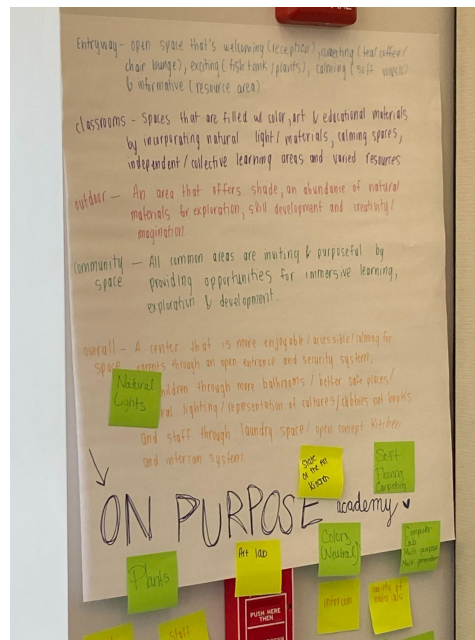 Entryway - open space that's welcoming (reception), connecting (tea/coffee/
chair lounge), exciting (fish tank/plants), calming (soft music)
& informative (resource area)
classrooms - Spaces that are filled w/ color, art & educational materials
by incorporating natural light/materials, calming spaces,
independent/collective learning areas and varied resources
outdoor - An area that offers shade, an abundance of natural
materials for exploration, skill development and creativity/
imagination.
community - All common areas are inviting & purposeful by
space providing opportunities for immersive learning,
exploration & development.
overall - A center that is more enjoyable/accessible/calming for
space parents through an open entrance and security system,
children through more bathrooms/better safe places/
lighting/representation of cultures/cubbies not hooks
and staff through laundry space/open concept kitchen
and intercom system.
Natural
Lights
State
of the Art
Kitchen
Soft
Flooring
Carpeting
ON PURPOSE academy
Plants
Art lab
Colors
(Neutral)
Computer
Lab
Multi purpose
intercom
materials
PUSH HERE
THEN
Staff